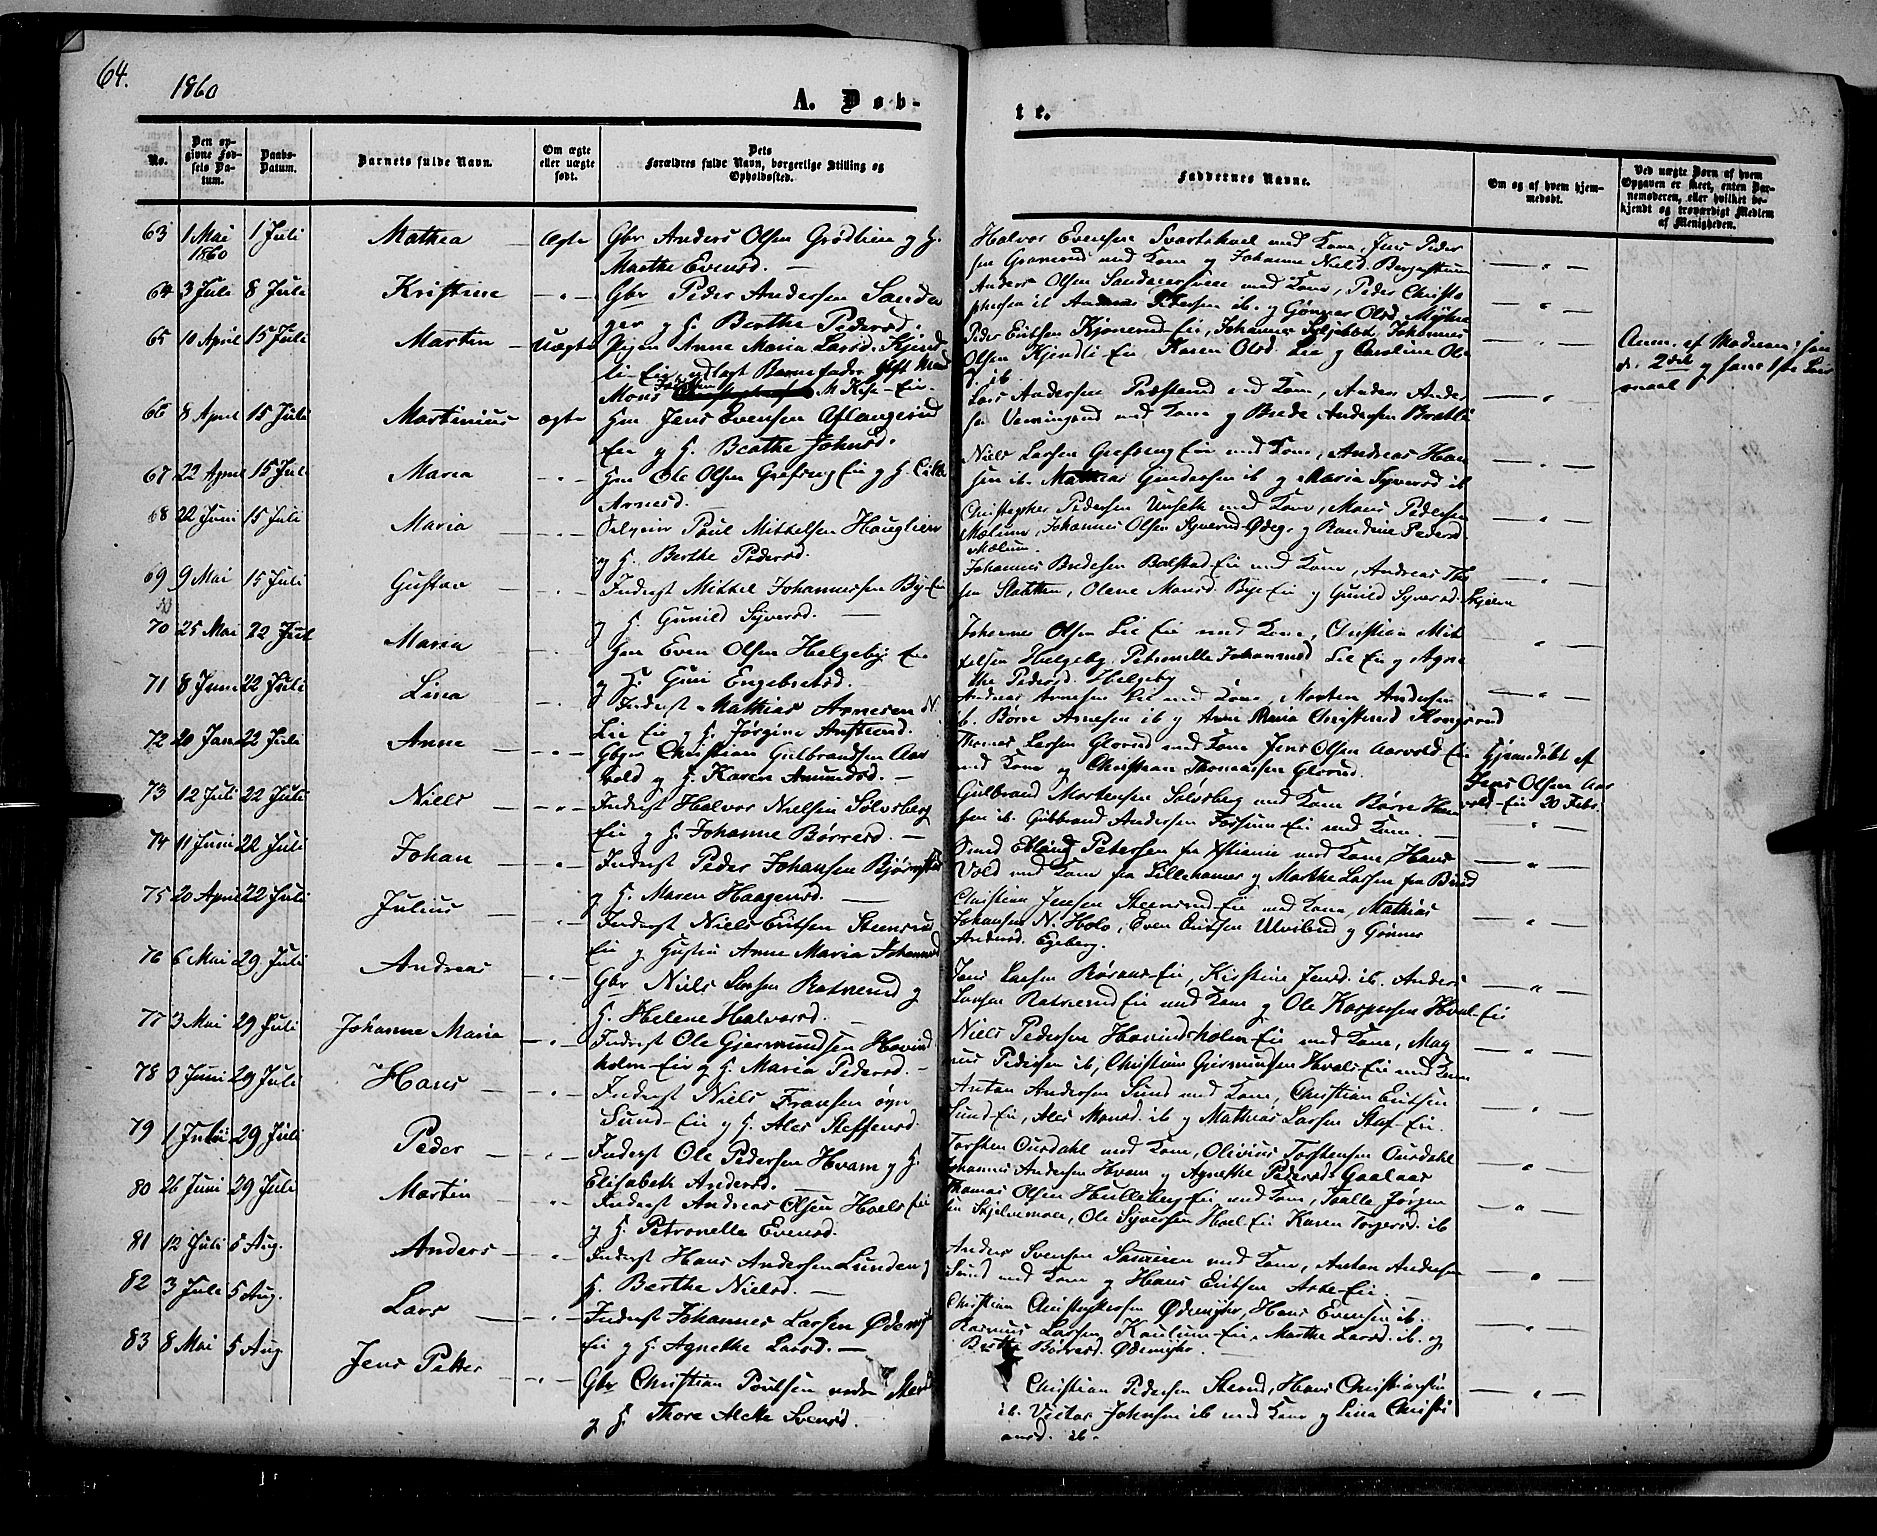 64.
1860
A. Døb-
te.
No.
Den op-
givne Fød-
sels Da-
tum.
Daabs-
Datum.
Barnets fulde Navn.
Om ægte
eller uægte
født.
Dets
Forældres fulde Navn, borgerlige Stilling og
Opholdssted.
Faddernes Navne.
Om og af hvem hjem-
medøbt.
Ved uægte Børn af hvem
Opgaven er skeet, enten Bar-
nemoderen, eller hvilket be-
kjendt og troværdigt Medlem
af Menigheden.
63 1 Mai 1860 1 Juli Mathea Ægte Gbr Anders Olsen Grødlien og H.
Marthe Evensd.
Halvor Evensen Svartshoel med Kone, Jens Peder
sen Gran­erud med Kone og Johanne Nielsd.
64 3 Juli 8 Juli Kristine Gbr Peder Andersen Sanda
ger og H. Berthe Pedersd.
Anders Olsen med Kone, Peder Christo
phersen ib. Andreas Pedersen ib. og Gønner Olsd.
65 10 April 15 Juli Martin Uægte Pigen Anne Maria Larsd. Kjend
li-Eie, udlagt Barnefader Gift Mand
Mons
Peder Eriksen Eie, Johannes Johannes
Olsen Kjendli Eie Karen Olsd. Lie og Caroline Ols
d. ib
Anm. af Moderen: han
d. 2det og hans 1ste Leir
maal
66 8 April 15 Juli Martinius ægte Hm Jens Evensen Aslangerud
Eie og H. Berthe Johnsd.
Lars Andersen med Kone, Anders Ander
sen med Kone og Brede Andersen
67 22 April 15 Juli Maria Hm Ole Olsen Grefseng Eie og H.
Arnesd.
Niels Larsen Grefseng Eie med Kone, Andreas Han
sen ib. Mathias Gundersen ib og Maria Syversd ib
68 22 Juni 15 Juli Maria Selveier Poul Mikkelsen Hauglien
og H. Berthe Pedersd.
Christopher Pedersen Unseth med Kone, Mons Pedersen
Mælum, Johannes Olsen Syverud-Ødeg. og Randine Pedersd
Mælum.
69 9 Mai 15 Juli Gustav Inderst Mikkel Johannessen By-Eie
og H. Gunild Syversd.
Johannes Bredesen Balstad-Eie med Kone, Andreas
sen Slaatten, Olene Monsd. Bye Eie og Gunild Syversd.
70 25 Mai 22 Juli Maria Hm Even Olsen Helgeby Eie
og H. Guri Engebretsd.
Johannes Olsen Lie Eie med Kone, Christian Mik
kelsen Helgeby, Petronelle Johannesd Lie Eie og Agne
the Pedersd. Helgeby
71 8 Juni 22 Juli Lina Inderst Mathias Arnesen N.
Lie Eie og H. Jørgine
Andreas Arnesen Lie med Kone, Morten Andersen
ib. Børre Arnesen ib og Anne Maria Kongsrud
72 20 Jan 22 Juli Anne Gbgr Christian Gulbrandsen Aar
vold og H. Karen Amundsd.
Thomas Larsen Glorud med Kone Jens Olsen Aarvold-Eie
med Kone og Christian Thomassen Glorud.
Hjemdøbt af
Jens Olsen Aar
vold-Eie 20 Febr.
73 12 Juli 22 Juli Niels Inderst Halvor Nielsen Sølvsberg
Eie og H. Johanne Børresd.
Gulbrand Mortensen Sølvsberg med Kone Børre Han
sen ib. Gulbrand Andersen Fossum-Eie med Kone.
74 11 Juni 22 Juli Johan Inderst Peder Johansen
og H. Maren Haagensd.
Petersen fra Xstiania med Kone, Hans
Vold med Kone fra Lillehamer og Marthe Larsen fra
75 20 April 22 Juli Julius Inderst Niels Eriksen Steensrud
Eie og Hustru Anne Maria Johannesd
Christian Jensen Steensrud-Eie med Kone, Mathias
Johansen N. Holo, Even Eriksen Ulvilund og Gønner
Andersd. Egeberg.
76 6 Mai 29 Juli Andreas Gbr Niels Larsen og
H. Helene Halvorsd.
Jens Larsen Eie, Kirstine Jensd. ib. Anders
Larsen Eie med Kone og Ole Hval-Eie
77 3 Mai 29 Juli Johanne Maria Inderst Ole Gjermundsen Hovind
holm-Eie og H. Maria Pedersd.
Niels Pedersen Hovindsholm-Eie med Kone, Mag
nus Pedersen ib, Christian Gjermundsen Hvals-Eie med Kone
78 9 Juni 29 Juli Hans Inderst Niels Fransen
Sund-Eie og H. Ales Steffensd.
Anton Andersen Sund med Kone, Christian Eriksen
Sund-Eie, Ales Monsd. ib og Mathias Larsen Staf-Eie.
79 1 Juli 29 Juli Peder Inderst Ole Pedersen Hvam og H.
Elisabeth Andersd.
Torsten Aurdahl med Kone, Olivius Torstensen Aurdahl
Johannes Andersen Hvam og Agnethe Pedersd. Gaalaas
80 26 Juni 29 Juli Martin Inderst Andreas Olsen Hoels Eie
og H. Petronelle Evensd.
Thomas Olsen Hulleberg-Eie med Kone, Jørgen
sen Ole Syversen Hoel Eie Karen Torgersd. ib
81 12 Juli 5 Aug. Anders Inderst Hans Andersen Lunden og
H. Berthe Nielsd.
Anders Svensen med Kone, Anton Andersen
Sund med Kone og Hans Eriksen
82 3 Juli 5 Aug. Lars Inderst Johannes Larsen
Eie og H. Agnethe Larsd.
Christian Christophersen Ødemyhr, Hans Evensen ib.
Rasmus Larsen Kaulum-Eie, Marthe Larsd. ib. og
Berthe Børresd. Ødemyhr.
83 8 Mai 5 Aug Jens Petter Gbr Christian Poulsen nedre
og H. Thore Svensd.
Christian Pedersen Hans Christiansen
ib. Victor Johnsen ib med Kone og Lina Christi
ansd. ib.